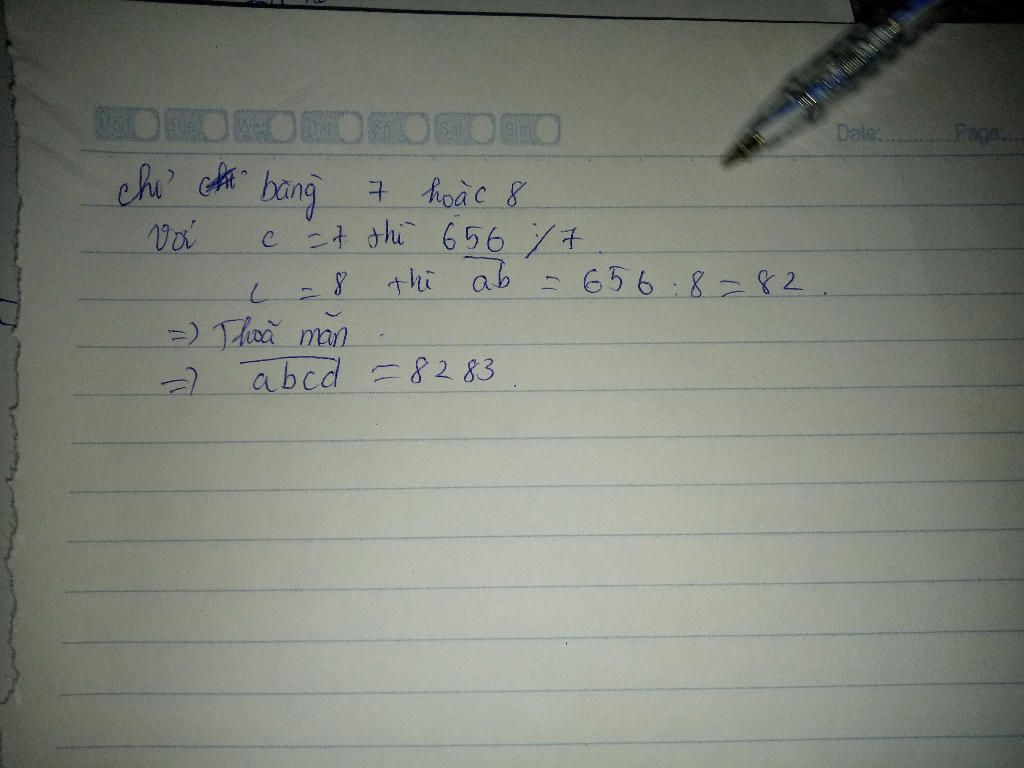 Mon Tue Wed Thu Fri Sat Sun
Date: Page:
chỉ bằng 7 hoặc 8
Với c = 7 thì 656 ⋮̸ 7.
c = 8 thì ab = 656 : 8 = 82.
=) Thoả mãn.
=) abcd = 8283.